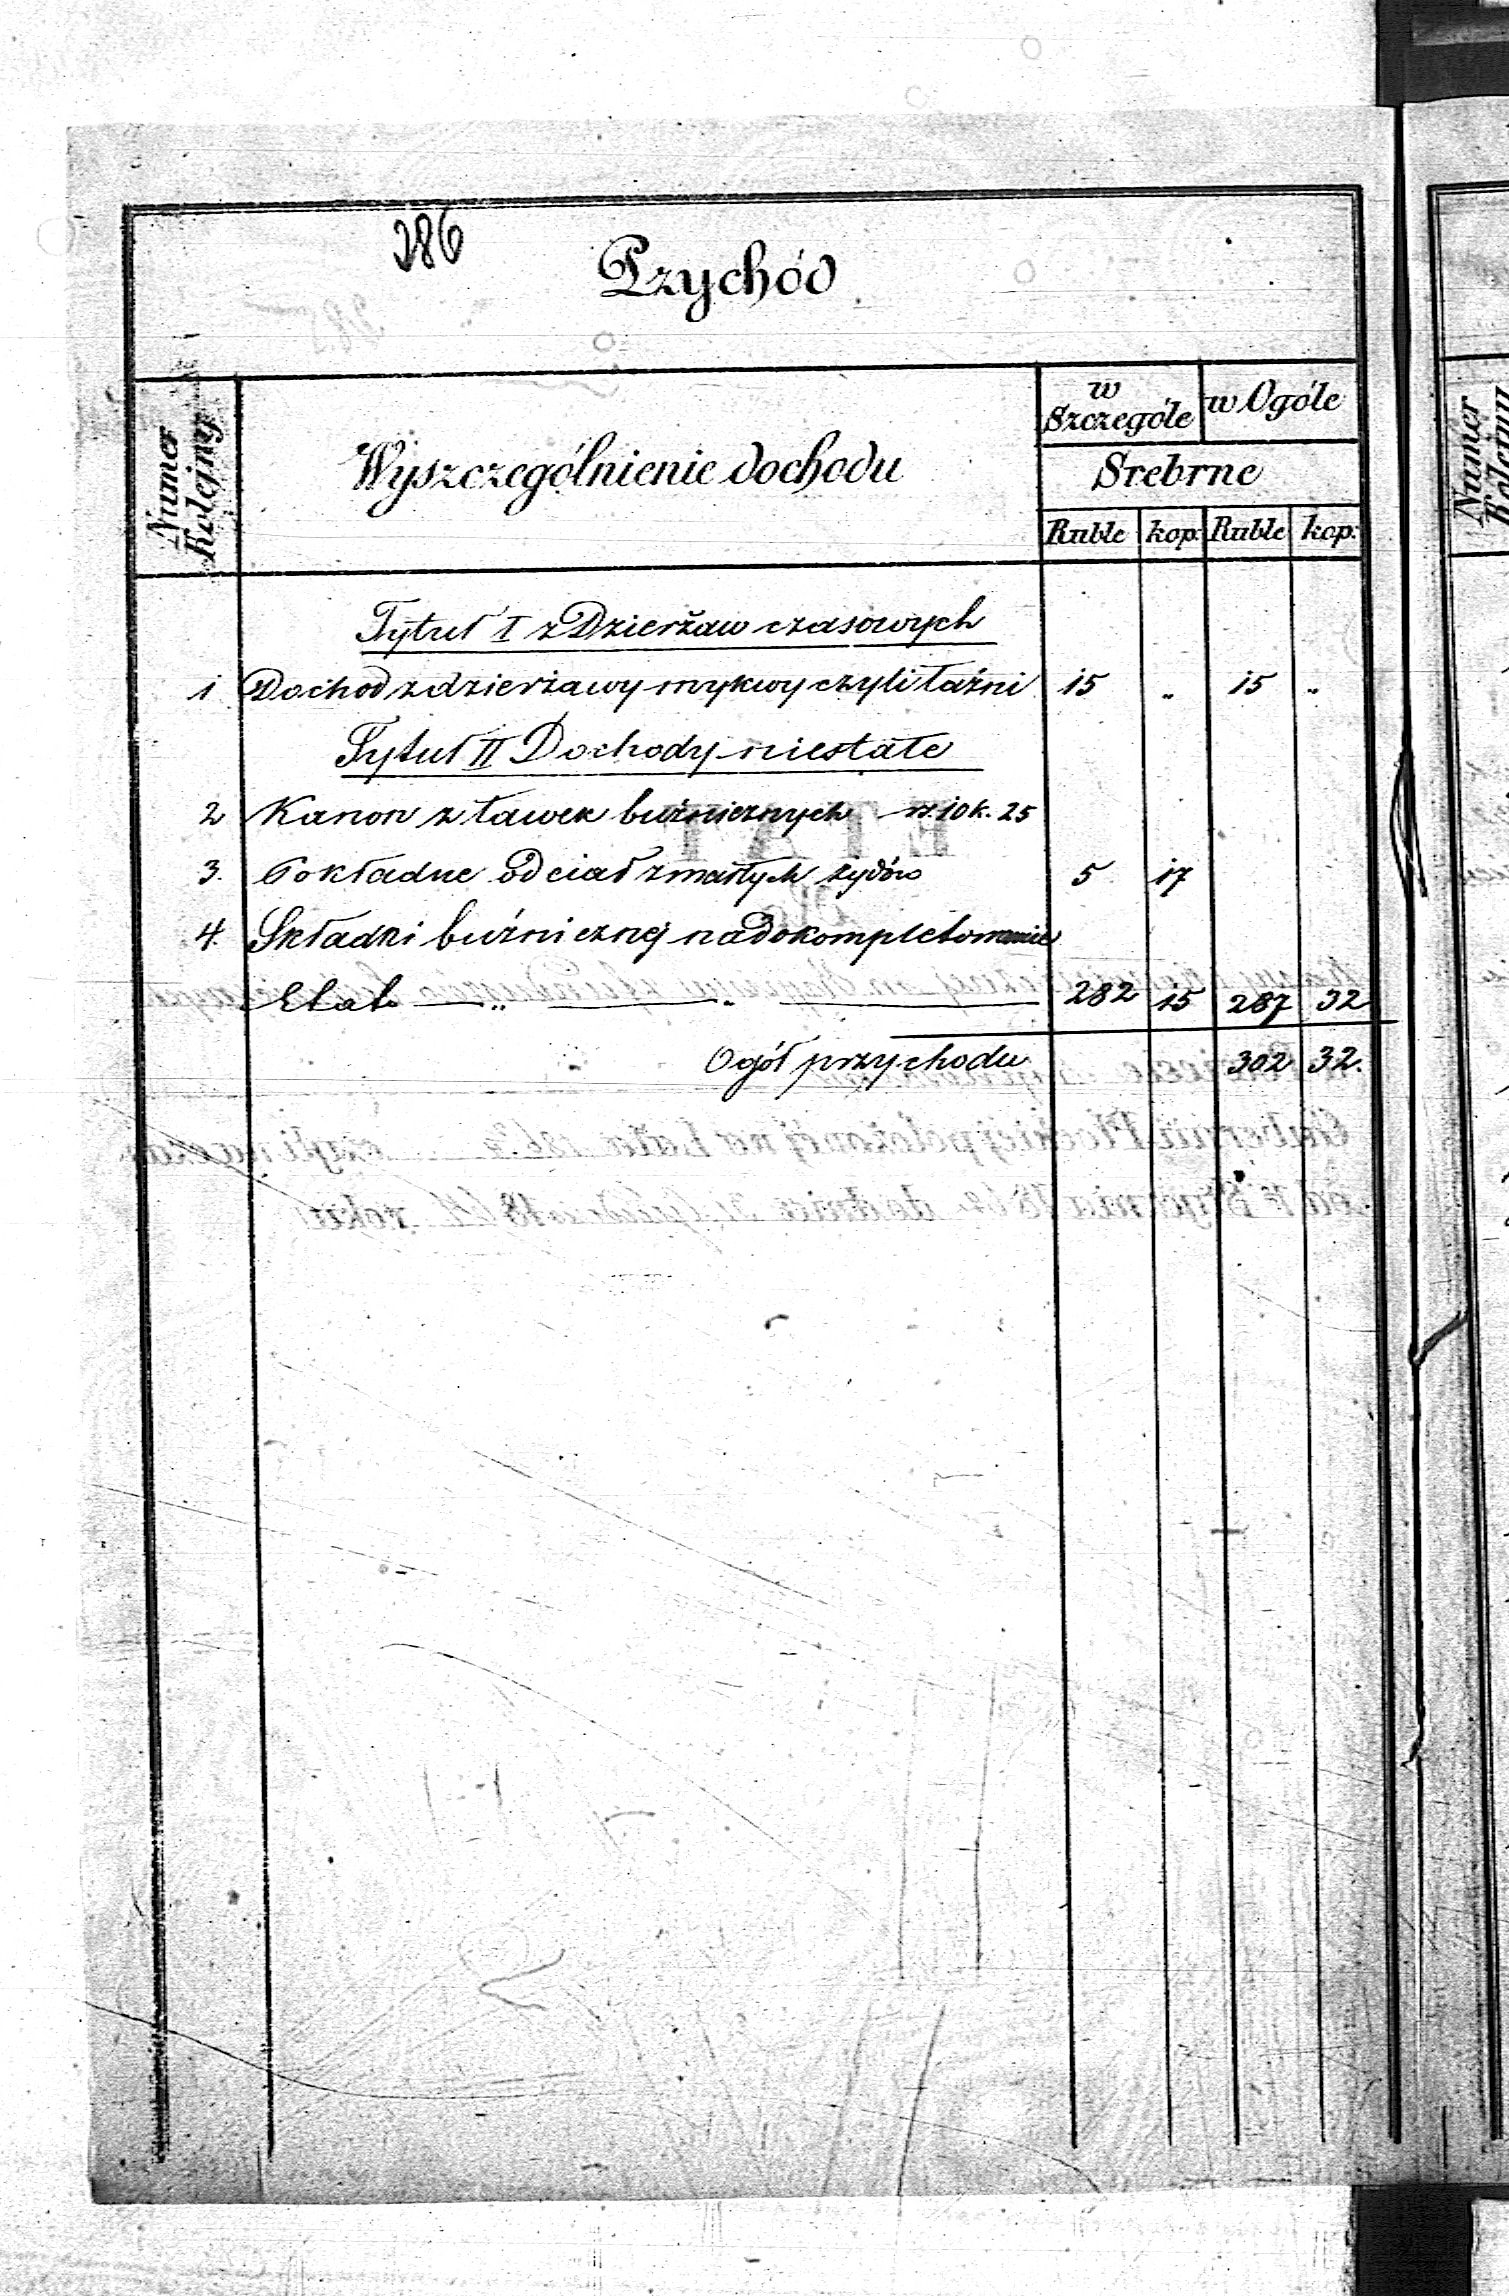 286
Przychód
Numer Kolejny
Wyszczególnienie dochodu
w Szczególe
w Ogóle
Srebrne
Ruble kop: Ruble kop:
Tytuł I z Dzierżaw czasowych
1 Dochod z dzierżawy mykwy czyli łaźni 15 „ 15 „
Tytuł II Dochody niestałe
2 Kanon z ławek bużnicznych rs. 10 k. 25
3. Pokładne od ciał zmarłych żydów 5 17
4. Składki bużnicznej na dokompletowanie
Etatu „ „ 282 15 287 32
Ogół przychodu 302 32.
Numer Kolejny